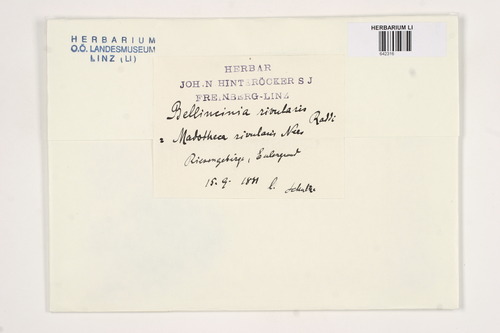 HERBARIUM
O.Ö. LANDESMUSEUM
LINZ (LI)
HERBARIUM LI
HERBAR
JOH.N HINTERÖCKER S J
FREINBERG-LINZ
Bellincinia rivularis
Raddi
= Madotheca rivularis Nees
Riesengebirge,
15. 9. 18 l. Schulze